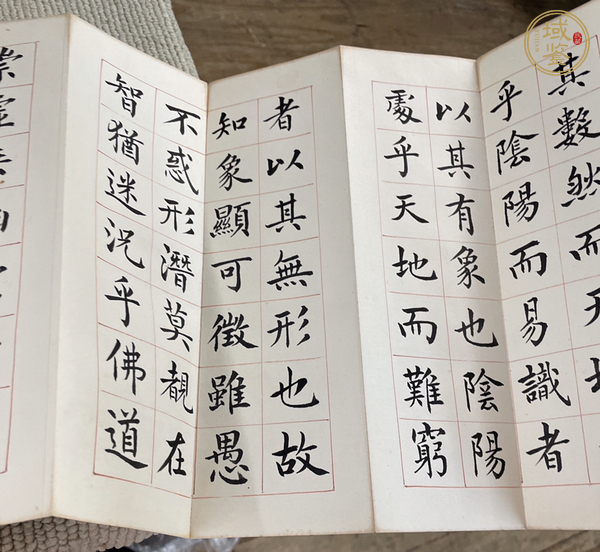 其數然而天
乎陰陽而易識者
以其有象也陰陽
處乎天地而難窮
者以其無形也故
知象顯可徵雖愚
不惑形潛莫覩在
智猶迷況乎佛道
崇虛
域鉴